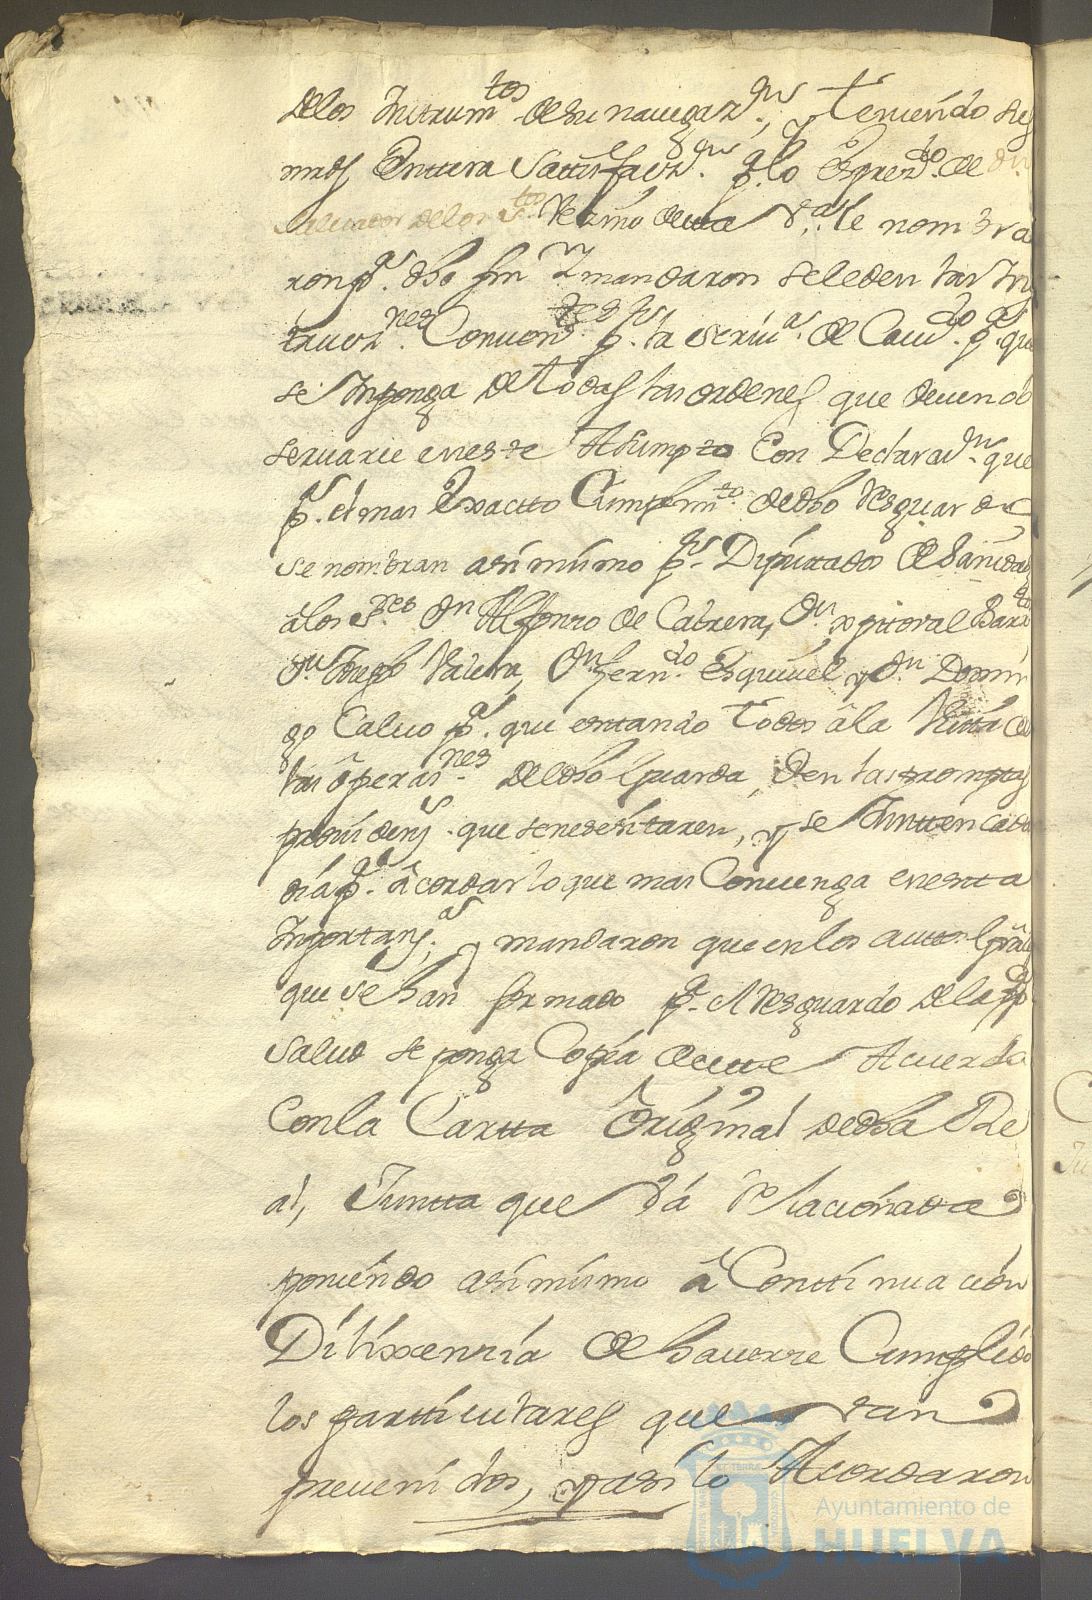 delos Instrumtos. desu navegazn., y Teniendo sus
mrds Enttera Sattisfazn. pr. lo Esprezdo. de dn.
Salvador delos Stos. Vezino desta Va. le nombra
ron pa. dho fin Y mandaron seleden las Ins
truczns. Convenetes. pr. la escrivа. de Cavdo. pa. que
se Inponga de todas las ordenes que deven ob
servarse eneste Asumpto Con Declaracn. que
pa. el mas Exactto Cumplimto. dedho Resguardo
se nombran asi mismo pr. Dipùtados de Sanidad
âlos Sres. Dn Alfonso de Cabrera, Dn.
Dn. Joseph Valera, Dn. Ferndo. Esquivel y Dn. Domin
go Calvo pa. que estando Todos âla Vistta de
las ôperasnes. deldho Guarda, den las promptas
providens. que senesesitaren, y se Juntten Cada
dia pa. âcordar lo que mas Convenga enesta
Inportansa; y mandaron que enlos auttos
que se han formado pa. el Resguardo dela
salud se ponga Copia deeste Acuerdo
Conla Cartta Original dedha Re
al, Juntta que Vá Relacionada
poniéndo asi mismo â Conttinuación
Dilixenzia de haverse Cumplido
los partticulares que van
prevenidos, y asi lo Acordaron
Ayuntamiento de
HUELVA